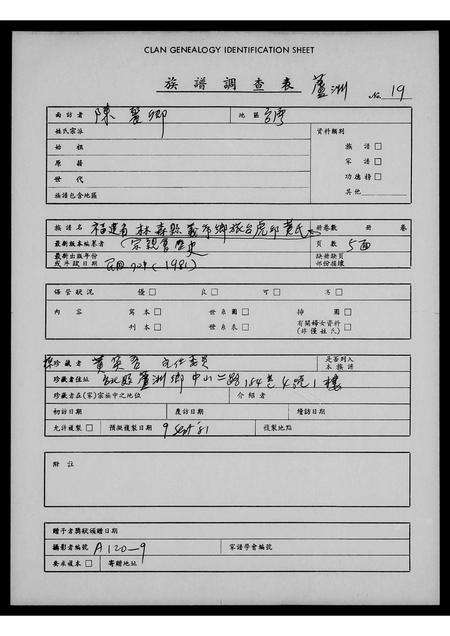 CLAN GENEALOGY IDENTIFICATION SHEET
族譜調查表 蘆洲 No. 19
面訪者 陳 卿 地區 台灣
姓氏宗派 資料類別
始祖 族譜 □
原籍 家譜 □
世代 功德榜 □
族譜包含地區 其他
族譜名 福建省林森縣 鄉旅台虎邱黃氏 冊卷數 冊 卷
最新版本編著者 (宗親會歷史 頁數 5面
最新出版年份或手鈔日期 民國70年(1981) 缺冊缺頁部份損壞
保管狀況 優 □ 良 □ 可 □ 劣 □
內容 寫本 □ 世系圖 □ 插圖 □
刊本 □ 世系表 □ 有關婦女資料(非僅姓氏) □
珍藏者 黃 主任委員 是否列入本族譜
珍藏者住址 台北縣蘆洲鄉中山二路184巷4號1樓
珍藏者在(家)宗族中之地位 介紹者
初訪日期 覆訪日期 續訪日期
允許複製 □ 預擬複製日期 9 Sept '81 複製地點
附註
贈予者獎狀頒贈日期
攝影者編號 A120-9 家譜學會編號
要求複本 □ 寄贈地址